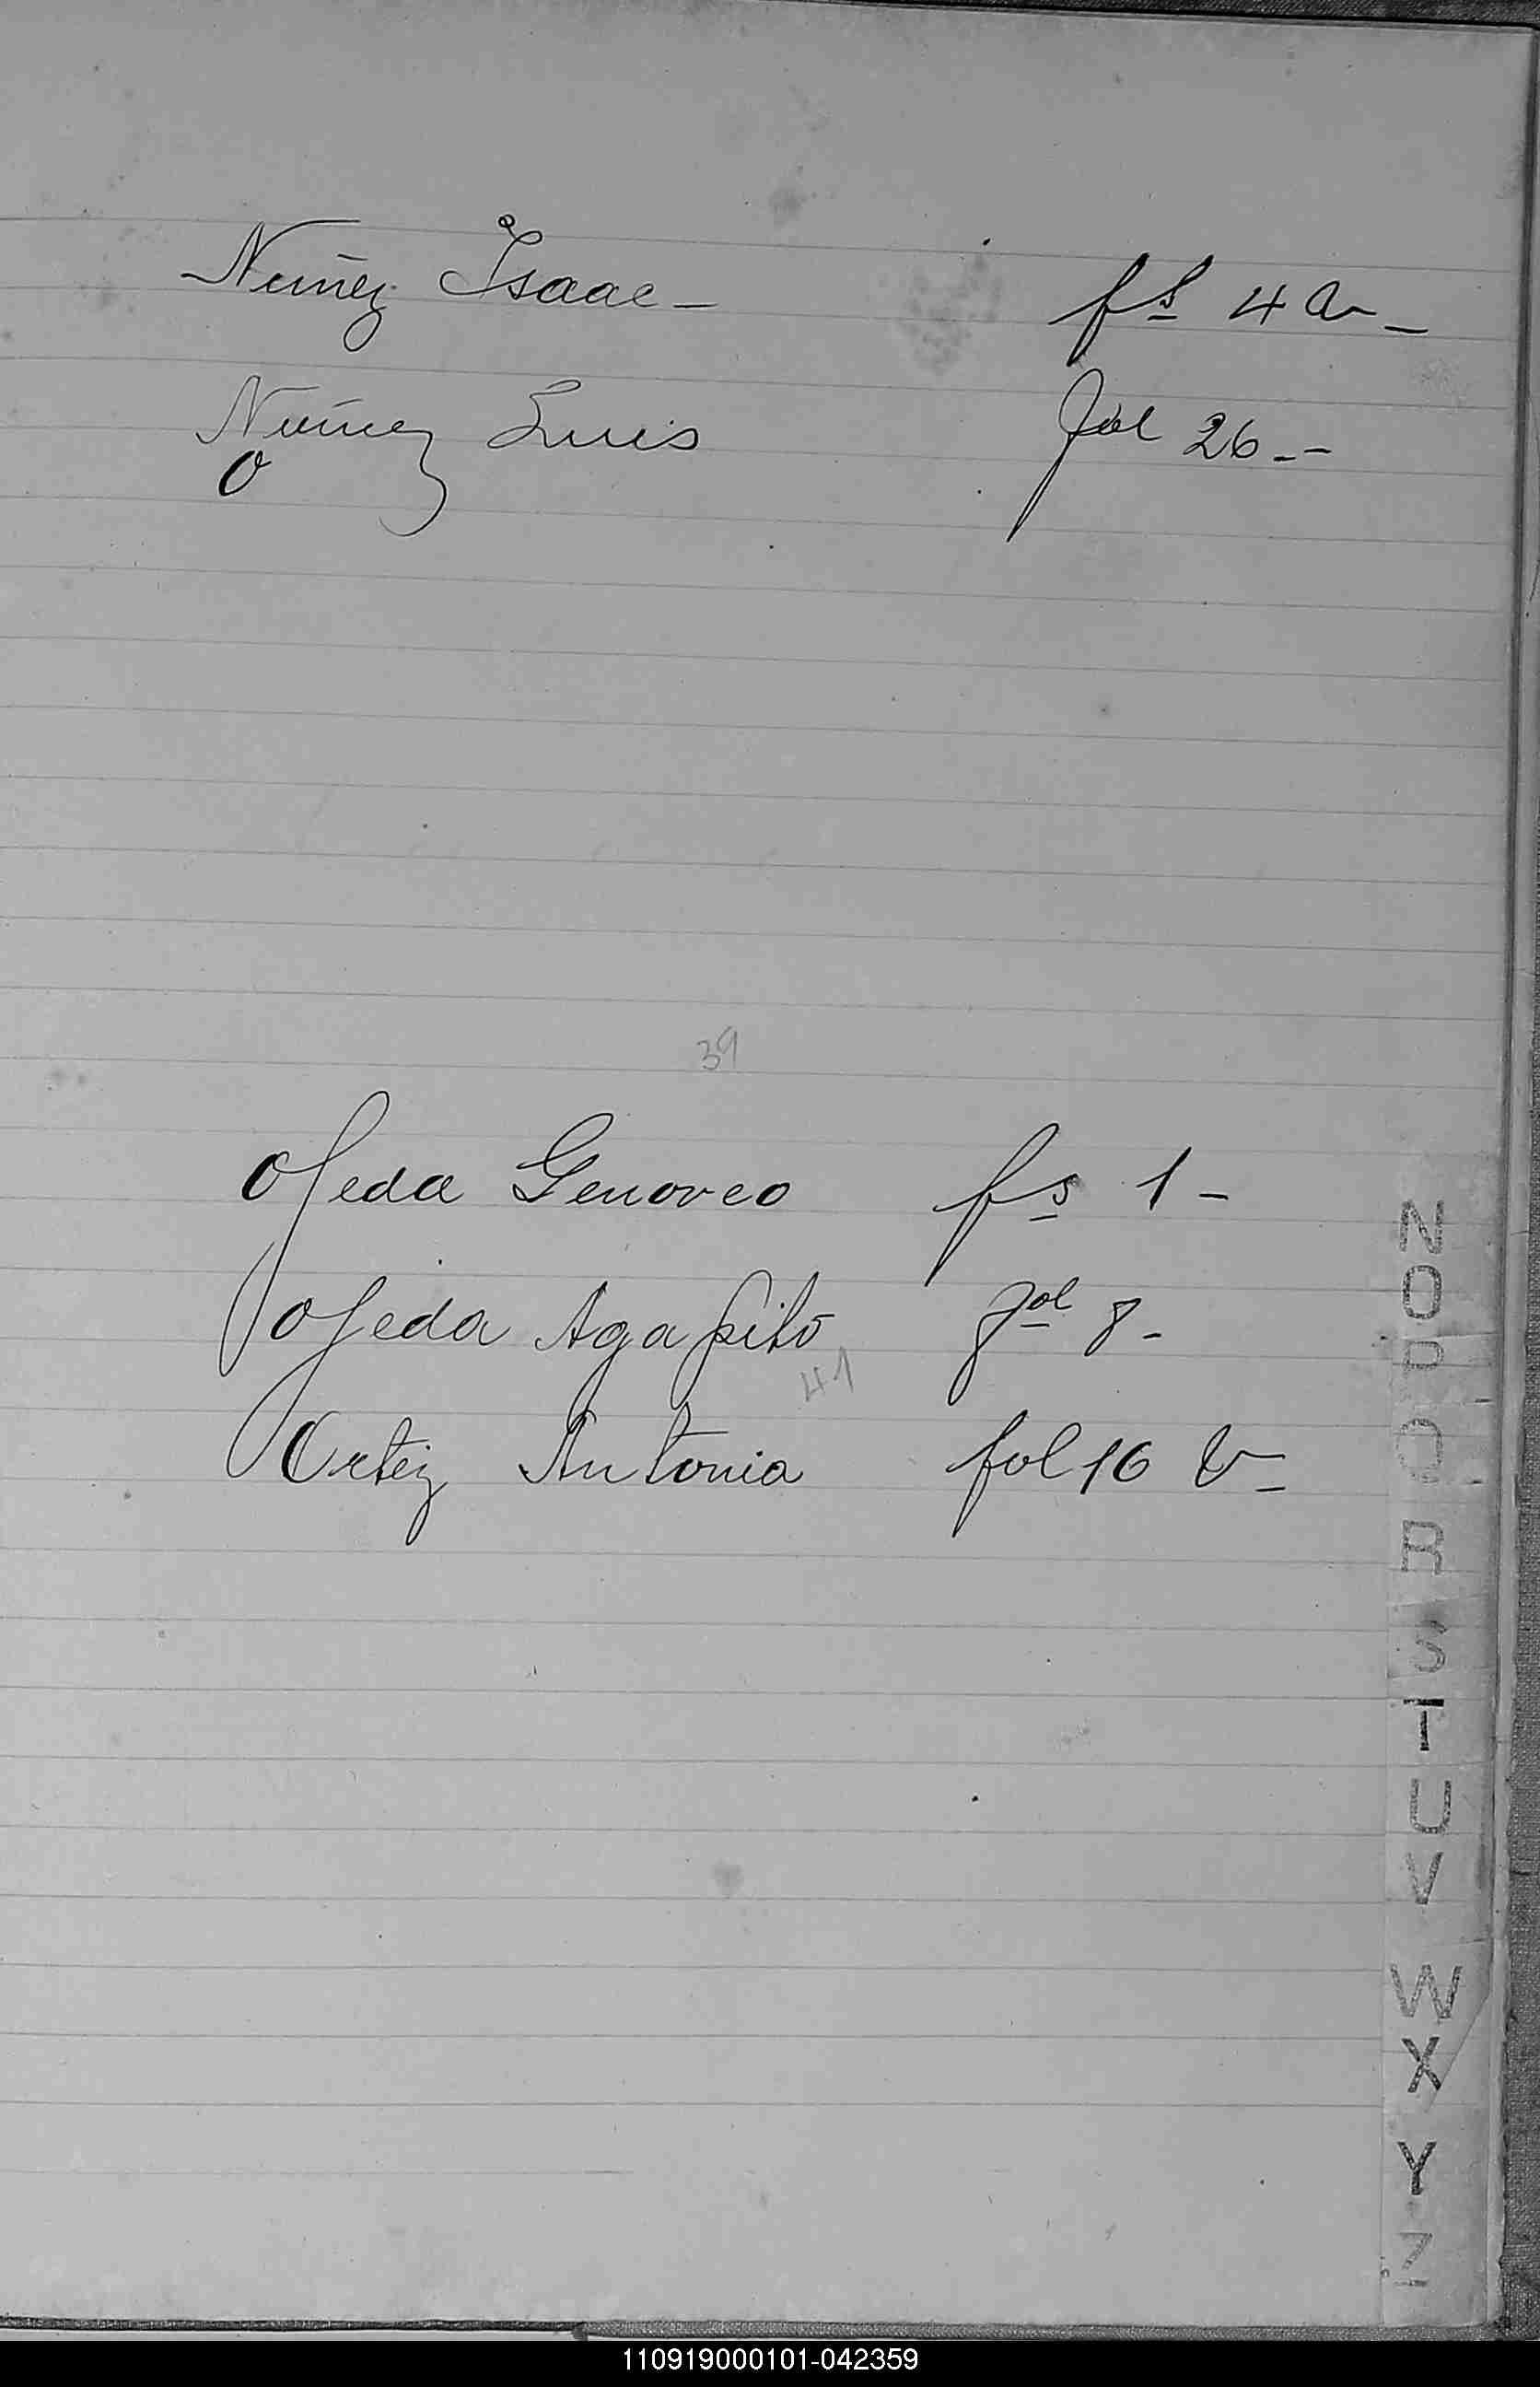 Nuñez Isaac - fs 4 a -
Nuñez Luis fol 26 --
O
39
Ojeda Genoveo fs 1 -
Ojeda Agapito fol 8 -
41
Ortiz Antonia fol 16 V -
N
O
P
Q
R
S
T
U
V
W
X
Y
Z
110919000101-042359